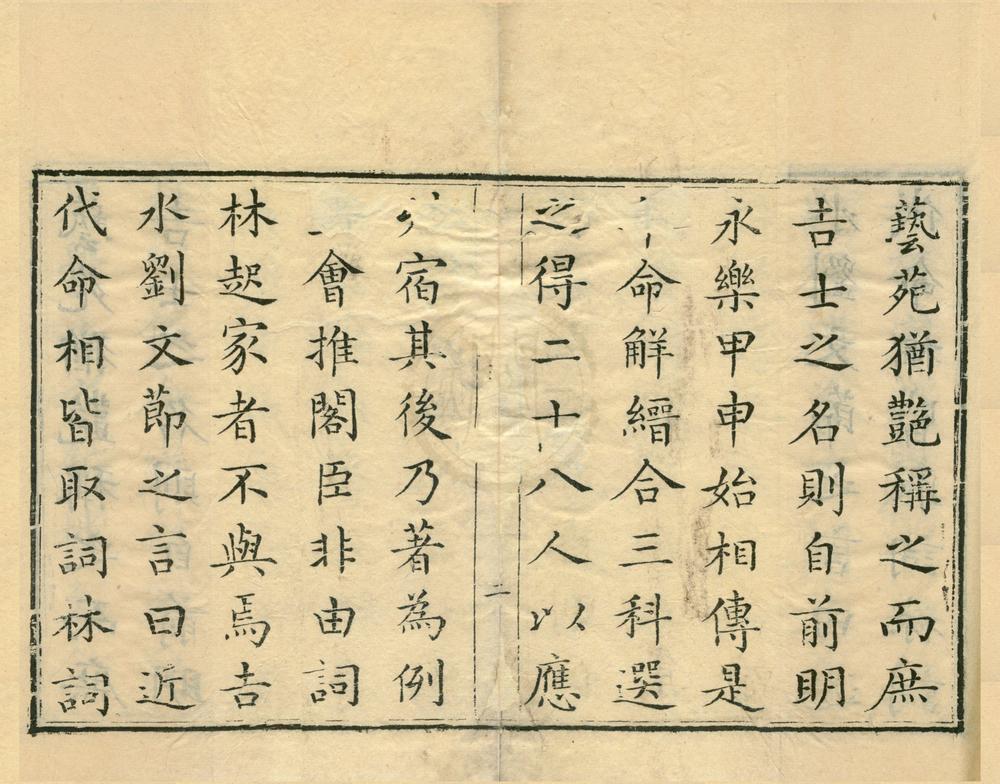 藝苑猶艷稱之而庶
吉士之名則自前明
永樂甲申始相傳是
命解縉合三科選
之得二十八人以應
宿其後乃著為例
會推閣臣非由詞
林起家者不與焉吉
水劉文節之言曰近
代命相皆取詞林詞
二